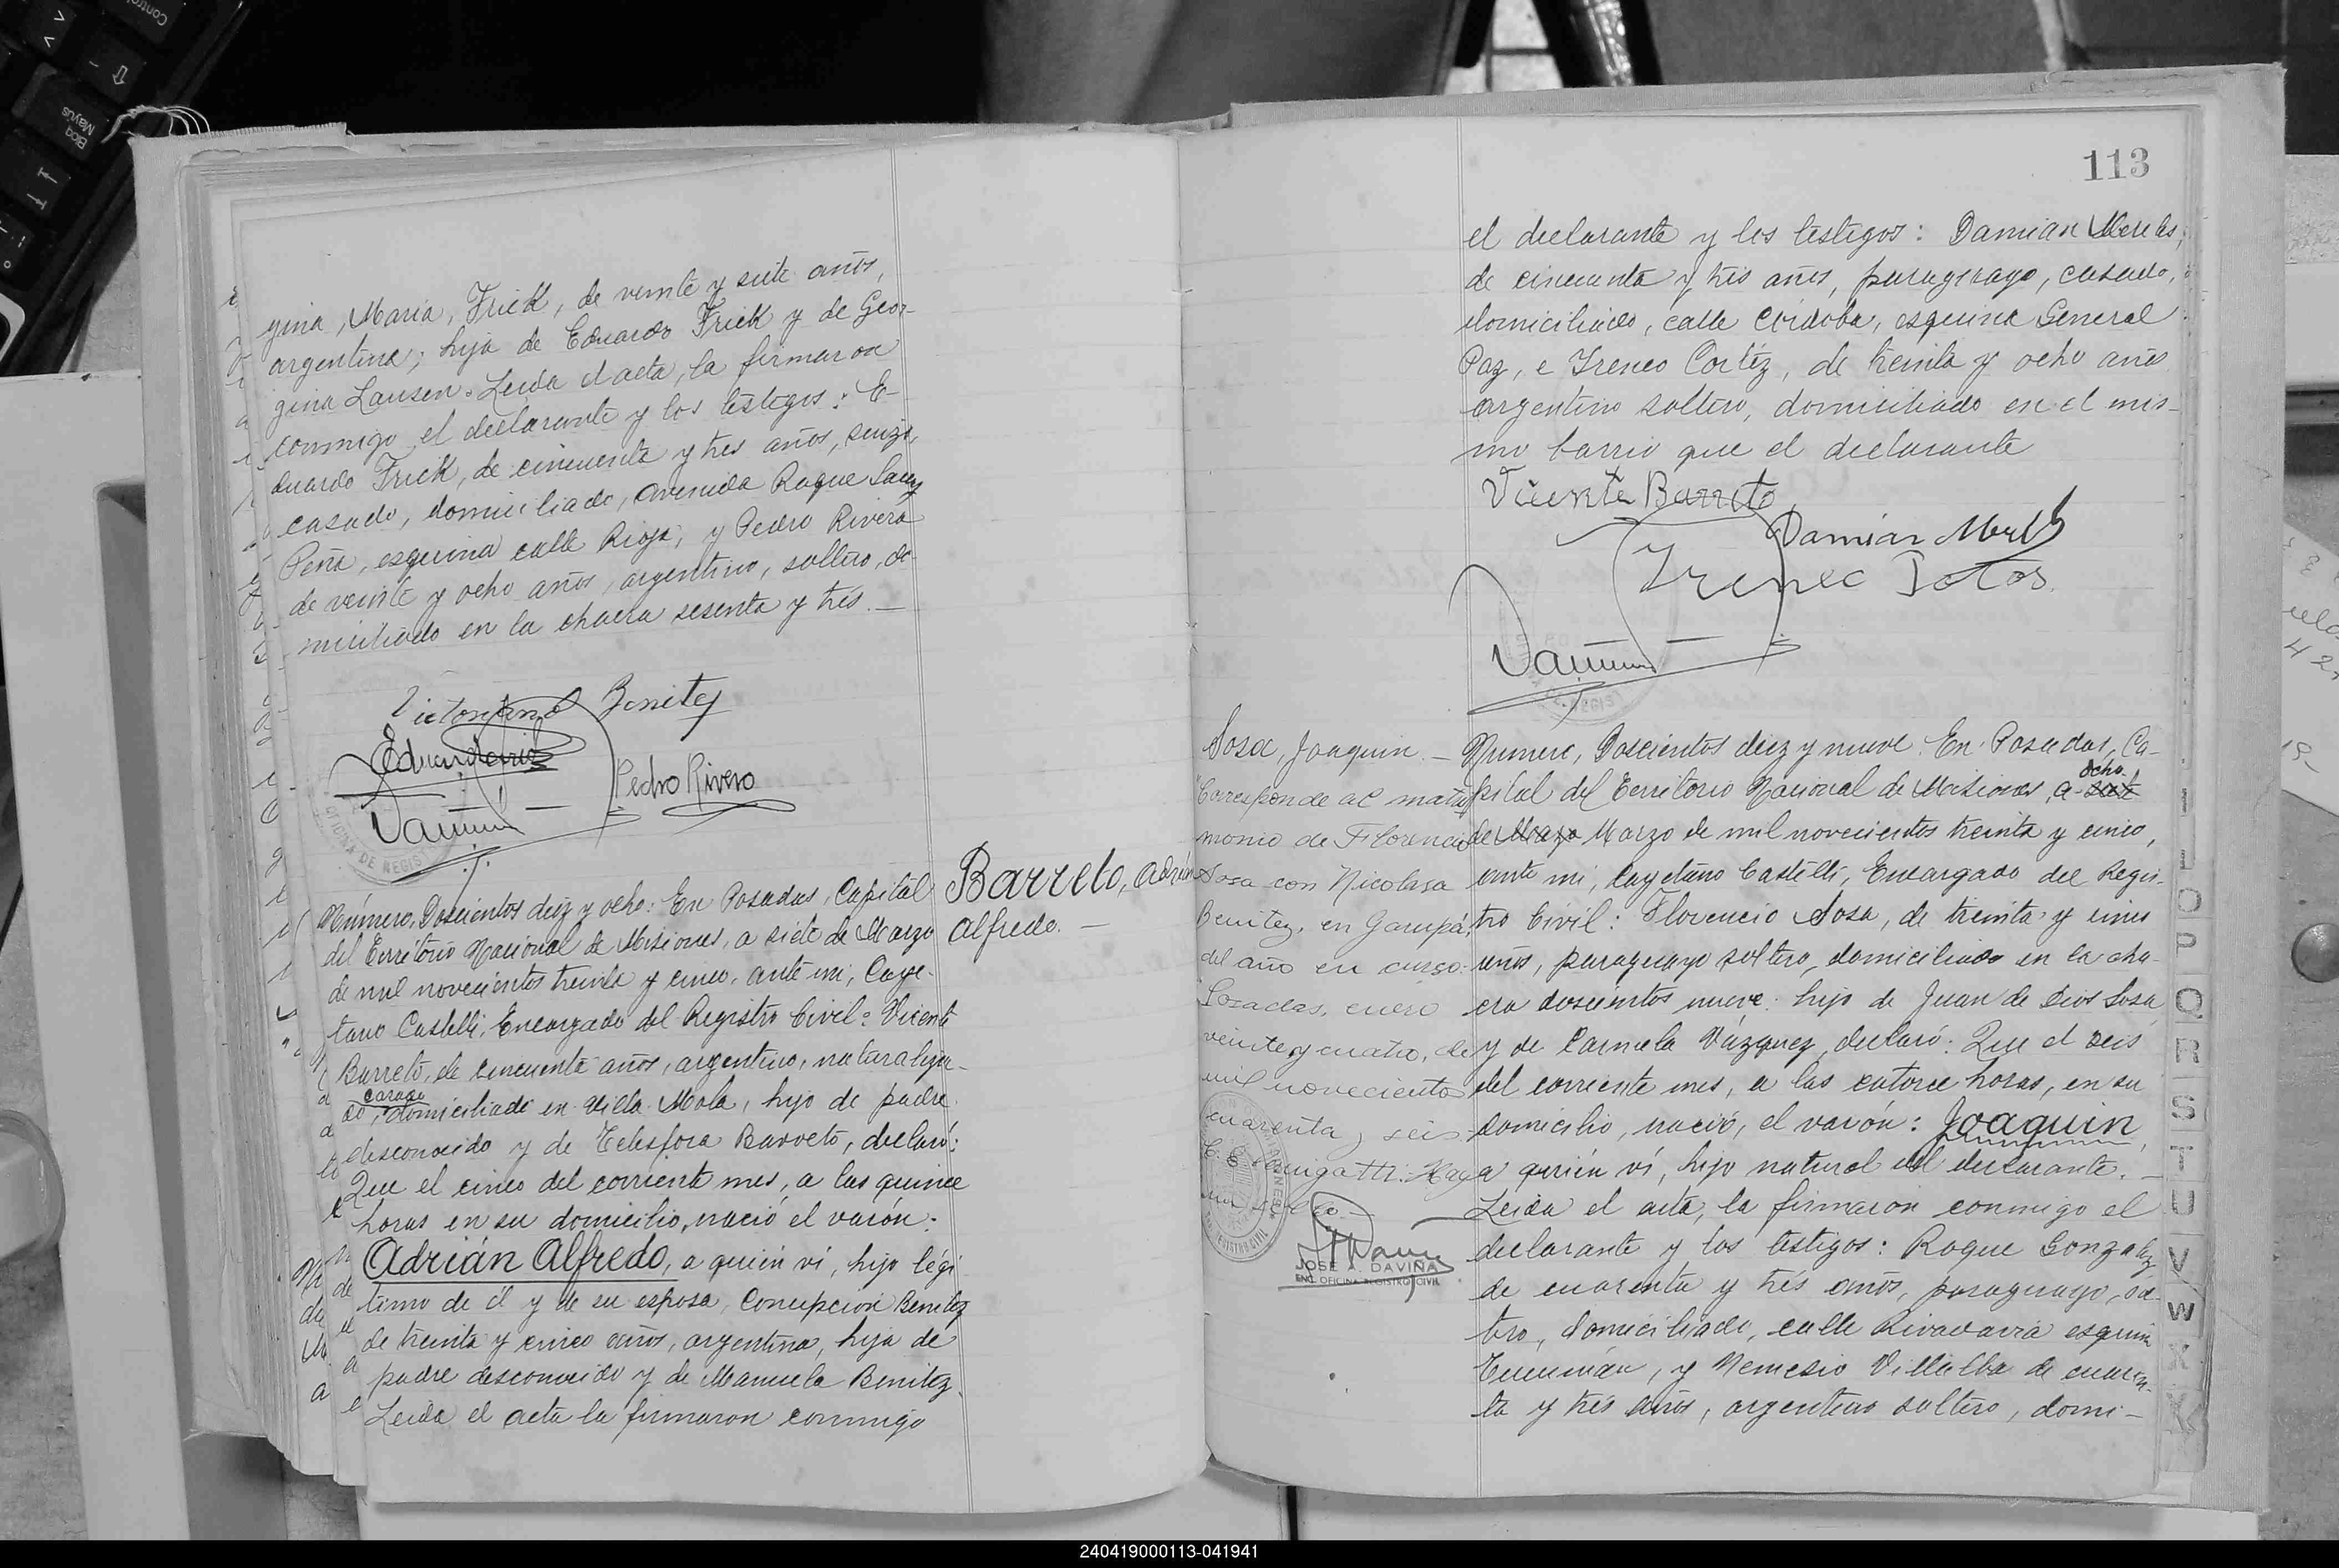 gina, Maria, Frick, de veinte y siete años,
argentina; hija de Eduardo Frick y de Geor-
gina Lausen. Leida el acta, la firmaron
conmigo el declarante y los testigos: E-
duardo Frick, de cincuenta y tres años, suizo,
casado, domiciliado, Avenida Roque Saenz
Peña, esquina calle Rioja; y Pedro Rivero
de veinte y ocho años, argentino, soltero, do-
miciliado en la chacra sesenta y trés. —
Victoriano Benitez
Eduardo Frick
Pedro Rivero
OFICINA DE REGIS
Barreto, Adrián
Alfredo. —
Número, Doscientos diez y ocho: En Posadas, Capital
del Territorio Nacional de Misiones, a siete de Marzo
de mil novecientos treinta y cinco, ante mi, Caye-
tano Castelli, Encargado del Registro Civil: Vicente
Barreto, de cincuenta años, argentino, naturaliza-
casado
do, domiciliado en Villa Mola, hijo de padre
desconocido y de Telesfora Barreto, declaró:
Que el cinco del corriente mes, a las quince
horas en su domicilio, nació el varón:
Adrián Alfredo, a quién ví, hijo légi
timo de él y de su esposa, Concepcion Benitez
de treinta y cinco años, argentina, hija de
padre desconocido y de Manuela Benitez.
Leida el acta la firmaron conmigo
113
el declarante y los testigos: Damian Mereles,
de cincuenta y tres años, paraguayo, casado,
domiciliado, calle Córdoba, esquina General
Paz, e Ireneo Cortéz, de treinta y ocho años
argentino soltero, domiciliado en el mis-
mo barrio que el declarante
Vicente Barreto
Damián
Sosa, Joaquin. —
Corresponde al matri
monio de Florencio
Sosa con Nicolasa
Benitez, en Garupá,
del año en curso:
Posadas, enero
veinte y cuatro, de
mil novecientos
cuarenta y seis
JOSE A. DAVIÑA
ENC. OFICINA REGISTRO CIVIL
Número, Doscientos diez y nueve. En Posadas, Ca-
ocho
pital del Territorio Nacional de Misiones, a siete
de Mayo Marzo de mil novecientos treinta y cinco,
ante mi, Cayetano Castelli, Encargado del Regis-
tro Civil: Florencio Sosa, de treinta y cinco
años, paraguayo soltero, domiciliado en la cha-
cra doscientos nueve: hijo de Juan de Dios Sosa
y de Carmela Vázquez, declaró: Que el seis
del corriente mes, a las catorce horas, en su
domicilio, nació, el varón: Joaquin,
a quién ví, hijo natural del declarante. —
Leida el acta, la firmaron conmigo el
declarante y los testigos: Roque Gonzalez
de cuarenta y trés años, paraguayo, sol-
tro, domiciliado, calle Rivadavia esquina
Tucumán, y Nemesio Villalba de cuaren-
ta y trés años, argentino soltero, domi-
O
P
Q
R
S
T
U
V
W
X
240419000113-041941